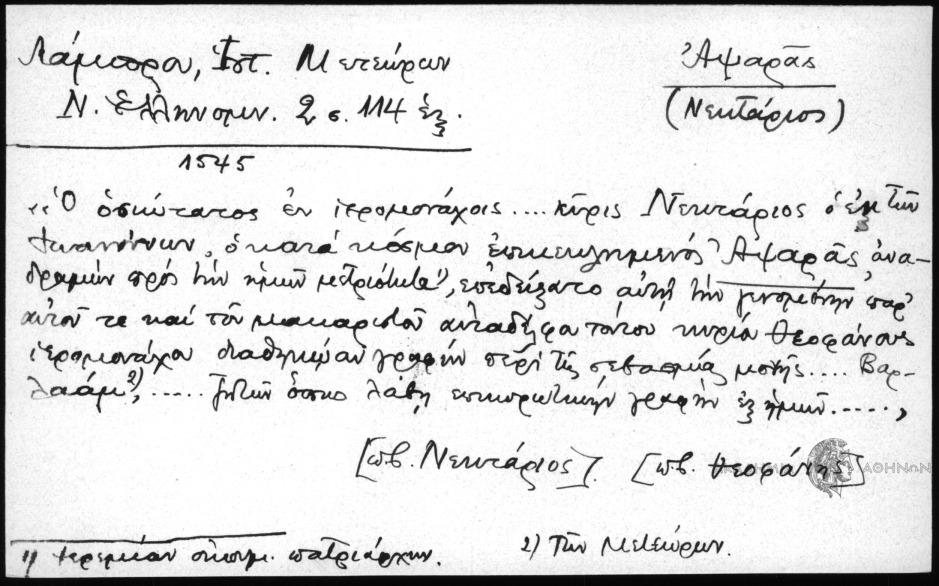 Λάμπρου, Ἱστ. Μετεώρων
Ν. Ἑλληνομν. 2 σ. 114 ἑξ.
Ἀψαρᾶς
(Νεκτάριος)
1545
„Ὁ ὁσιώτατος ἐν ἱερομονάχοις.... κῦρις Νεκτάριος ὁ ἐκ τῶν
Ἰωαννίνων, ὁ κατά κόσμον ἐπικεκλημένος Ἀψαρᾶς, ἀνα-
δραμών πρός τήν ἡμῶν μετριότητα¹⁾, ἐπεδείξατο αὐτῇ τήν γενομένην παρ'
αὐτοῦ τε καί τοῦ μακαρίτου αὐταδέλφου τούτου κυρίου Θεοφάνους
ἱερομονάχου διαθηκώαν γραφήν περί τῆς σεβασμίας μονῆς.... Βαρ-
λαάμ²⁾, ..... ζητῶν ὅπως λάβῃ ἐπικυρωτικήν γραφήν ἐξ ἡμῶν .....,
[πβ. Νεκτάριος]. [πβ. Θεοφάνης]
ΑΘΗΝΩΝ
1) Ἱερεμίαν οἰκουμ. πατριάρχην.
2) Τῶν Μετεώρων.